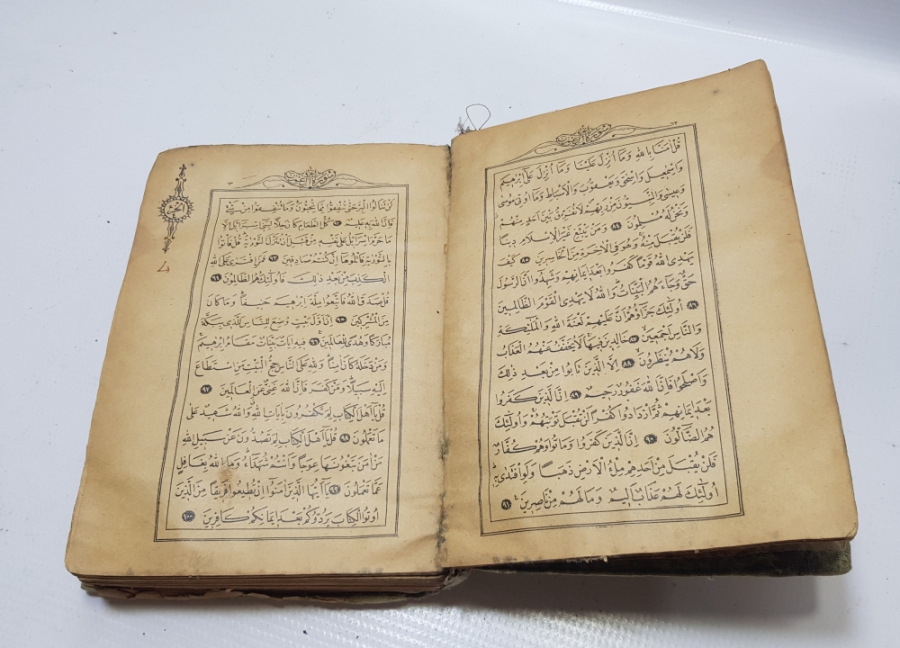 سورة آل عمران
قُلْ اٰمَنَّا بِاللّٰهِ وَمَٓا اُنْزِلَ عَلَيْنَا وَمَٓا اُنْزِلَ عَلٰٓى اِبْرٰهِيمَ
وَاِسْمٰعِيلَ وَاِسْحٰقَ وَيَعْقُوبَ وَالْاَسْبَاطِ وَمَٓا اُوتِيَ مُوسٰى
وَعِيسٰى وَالنَّبِيُّونَ مِنْ رَبِّهِمْ لَا نُفَرِّقُ بَيْنَ اَحَدٍ مِنْهُمْ
وَنَحْنُ لَهُ مُسْلِمُونَ ٨٤ وَمَنْ يَبْتَغِ غَيْرَ الْاِسْلَامِ دِينًا
فَلَنْ يُقْبَلَ مِنْهُ وَهُوَ فِي الْاٰخِرَةِ مِنَ الْخَاسِرِينَ ٨٥ كَيْفَ
يَهْدِي اللّٰهُ قَوْمًا كَفَرُوا بَعْدَ اِيمَانِهِمْ وَشَهِدُٓوا اَنَّ الرَّسُولَ
حَقٌّ وَجَٓاءَهُمُ الْبَيِّنَاتُ وَاللّٰهُ لَا يَهْدِي الْقَوْمَ الظَّالِمِينَ
٨٦ اُولٰٓئِكَ جَزَٓاؤُهُمْ اَنَّ عَلَيْهِمْ لَعْنَةَ اللّٰهِ وَالْمَلٰٓئِكَةِ
وَالنَّاسِ اَجْمَعِينَ ٨٧ خَالِدِينَ فِيهَا لَا يُخَفَّفُ عَنْهُمُ الْعَذَابُ
وَلَا هُمْ يُنْظَرُونَ ٨٨ اِلَّا الَّذِينَ تَابُوا مِنْ بَعْدِ ذٰلِكَ
وَاَصْلَحُوا فَاِنَّ اللّٰهَ غَفُورٌ رَحِيمٌ ٨٩ اِنَّ الَّذِينَ كَفَرُوا
بَعْدَ اِيمَانِهِمْ ثُمَّ ازْدَادُوا كُفْرًا لَنْ تُقْبَلَ تَوْبَتُهُمْ وَاُولٰٓئِكَ
هُمُ الضَّٓالُّونَ ٩٠ اِنَّ الَّذِينَ كَفَرُوا وَمَاتُوا وَهُمْ كُفَّارٌ
فَلَنْ يُقْبَلَ مِنْ اَحَدِهِمْ مِلْءُ الْاَرْضِ ذَهَبًا وَلَوِ افْتَدٰى بِهِ
اُولٰٓئِكَ لَهُمْ عَذَابٌ اَلِيمٌ وَمَا لَهُمْ مِنْ نَاصِرِينَ ٩١
لَنْ تَنَالُوا الْبِرَّ حَتّٰى تُنْفِقُوا مِمَّا تُحِبُّونَ وَمَا تُنْفِقُوا مِنْ شَيْءٍ
فَاِنَّ اللّٰهَ بِهِ عَلِيمٌ ٩٢ كُلُّ الطَّعَامِ كَانَ حِلًّا لِبَنِٓي اِسْرَٓائِيلَ اِلَّا
مَا حَرَّمَ اِسْرَٓائِيلُ عَلٰى نَفْسِهِ مِنْ قَبْلِ اَنْ تُنَزَّلَ التَّوْرٰيةُ قُلْ فَأْتُوا
بِالتَّوْرٰيةِ فَاتْلُوهَٓا اِنْ كُنْتُمْ صَادِقِينَ ٩٣ فَمَنِ افْتَرٰى عَلَى اللّٰهِ
الْكَذِبَ مِنْ بَعْدِ ذٰلِكَ فَاُولٰٓئِكَ هُمُ الظَّالِمُونَ ٩٤
قُلْ صَدَقَ اللّٰهُ فَاتَّبِعُوا مِلَّةَ اِبْرٰهِيمَ حَنِيفًا وَمَا كَانَ
مِنَ الْمُشْرِكِينَ ٩٥ اِنَّ اَوَّلَ بَيْتٍ وُضِعَ لِلنَّاسِ لَلَّذِي بِبَكَّةَ
مُبَارَكًا وَهُدًى لِلْعَالَمِينَ ٩٦ فِيهِ اٰيَاتٌ بَيِّنَاتٌ مَقَامُ اِبْرٰهِيمَ
وَمَنْ دَخَلَهُ كَانَ اٰمِنًا وَلِلّٰهِ عَلَى النَّاسِ حِجُّ الْبَيْتِ مَنِ اسْتَطَاعَ
اِلَيْهِ سَبِيلًا وَمَنْ كَفَرَ فَاِنَّ اللّٰهَ غَنِيٌّ عَنِ الْعَالَمِينَ ٩٧
قُلْ يَٓا اَهْلَ الْكِتَابِ لِمَ تَكْفُرُونَ بِاٰيَاتِ اللّٰهِ وَاللّٰهُ شَهِيدٌ عَلٰى
مَا تَعْمَلُونَ ٩٨ قُلْ يَٓا اَهْلَ الْكِتَابِ لِمَ تَصُدُّونَ عَنْ سَبِيلِ اللّٰهِ
مَنْ اٰمَنَ تَبْغُونَهَا عِوَجًا وَاَنْتُمْ شُهَدَٓاءُ وَمَا اللّٰهُ بِغَافِلٍ
عَمَّا تَعْمَلُونَ ٩٩ يَٓا اَيُّهَا الَّذِينَ اٰمَنُٓوا اِنْ تُطِيعُوا فَرِيقًا مِنَ الَّذِينَ
اُوتُوا الْكِتَابَ يَرُدُّوكُمْ بَعْدَ اِيمَانِكُمْ كَافِرِينَ ١٠٠